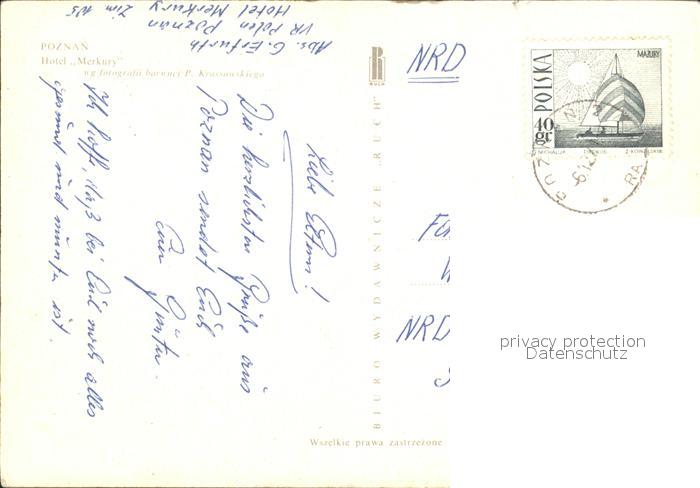 POZNAŃ
Hotel „Merkury”
wg fotografii barwnej P. Krassowskiego
Abs. G. Erfurth
VR Polen Poznań
Hotel Merkury Zim
Liebe Eltern!
Die herzlichsten Grüße aus
Poznan sendet Euch
Euer Günter.
Ich hoffe, daß bei Euch noch alles
gesund und munter ist.
RUCH
BIURO WYDAWNICZE „RUCH”
Wszelkie prawa zastrzeżone
NRD
POLSKA
40 gr
MAZURY
NRD
privacy protection
Datenschutz